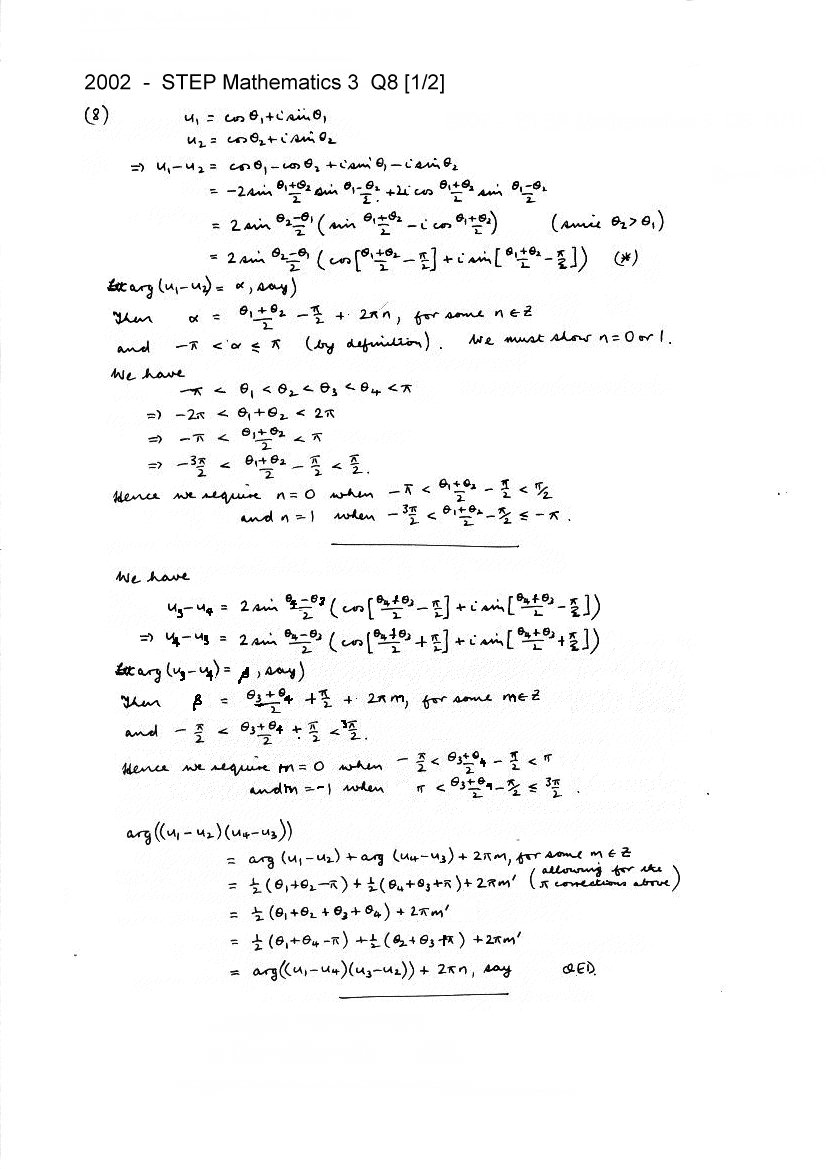 2002 - STEP Mathematics 3 Q8 [1/2]
(8) u₁ = cos θ₁ + i sin θ₁
u₂ = cos θ₂ + i sin θ₂
⇒ u₁ - u₂ = cos θ₁ - cos θ₂ + i sin θ₁ - i sin θ₂
= -2 sin (θ₁+θ₂)/2 sin (θ₁-θ₂)/2 + 2i cos (θ₁+θ₂)/2 sin (θ₁-θ₂)/2
= 2 sin (θ₂-θ₁)/2 (sin (θ₁+θ₂)/2 - i cos (θ₁+θ₂)/2) (since θ₂ > θ₁)
= 2 sin (θ₂-θ₁)/2 (cos[(θ₁+θ₂)/2 - π/2] + i sin[(θ₁+θ₂)/2 - π/2]) (*)
arg(u₁-u₂) = α, say)
Then α = (θ₁+θ₂)/2 - π/2 + 2πn, for some n ∈ Z
and -π < α ≤ π (by definition). We must show n = 0 or 1.
We have
-π < θ₁ < θ₂ < θ₃ < θ₄ < π
⇒ -2π < θ₁+θ₂ < 2π
⇒ -π < (θ₁+θ₂)/2 < π
⇒ -3π/2 < (θ₁+θ₂)/2 - π/2 < π/2.
Hence we require n = 0 when -π < (θ₁+θ₂)/2 - π/2 < π/2
and n = 1 when -3π/2 < (θ₁+θ₂)/2 - π/2 ≤ -π.
We have
u₃-u₄ = 2 sin (θ₄-θ₃)/2 (cos[(θ₄+θ₃)/2 - π/2] + i sin[(θ₄+θ₃)/2 - π/2])
⇒ u₄-u₃ = 2 sin (θ₄-θ₃)/2 (cos[(θ₄+θ₃)/2 + π/2] + i sin[(θ₄+θ₃)/2 + π/2])
arg(u₃-u₄) = β, say)
Then β = (θ₃+θ₄)/2 + π/2 + 2πm, for some m ∈ Z
and -π/2 < (θ₃+θ₄)/2 + π/2 < 3π/2.
Hence we require m = 0 when -π/2 < (θ₃+θ₄)/2 - π/2 < π
and m = -1 when π < (θ₃+θ₄)/2 - π/2 ≤ 3π/2.
arg((u₁-u₂)(u₄-u₃))
= arg(u₁-u₂) + arg(u₄-u₃) + 2πm, for some m ∈ Z
= ½(θ₁+θ₂-π) + ½(θ₄+θ₃+π) + 2πm' (allowing for the π corrections above)
= ½(θ₁+θ₂+θ₃+θ₄) + 2πm'
= ½(θ₁+θ₄-π) + ½(θ₂+θ₃+π) + 2πm'
= arg((u₁-u₄)(u₃-u₂)) + 2πn, say QED.